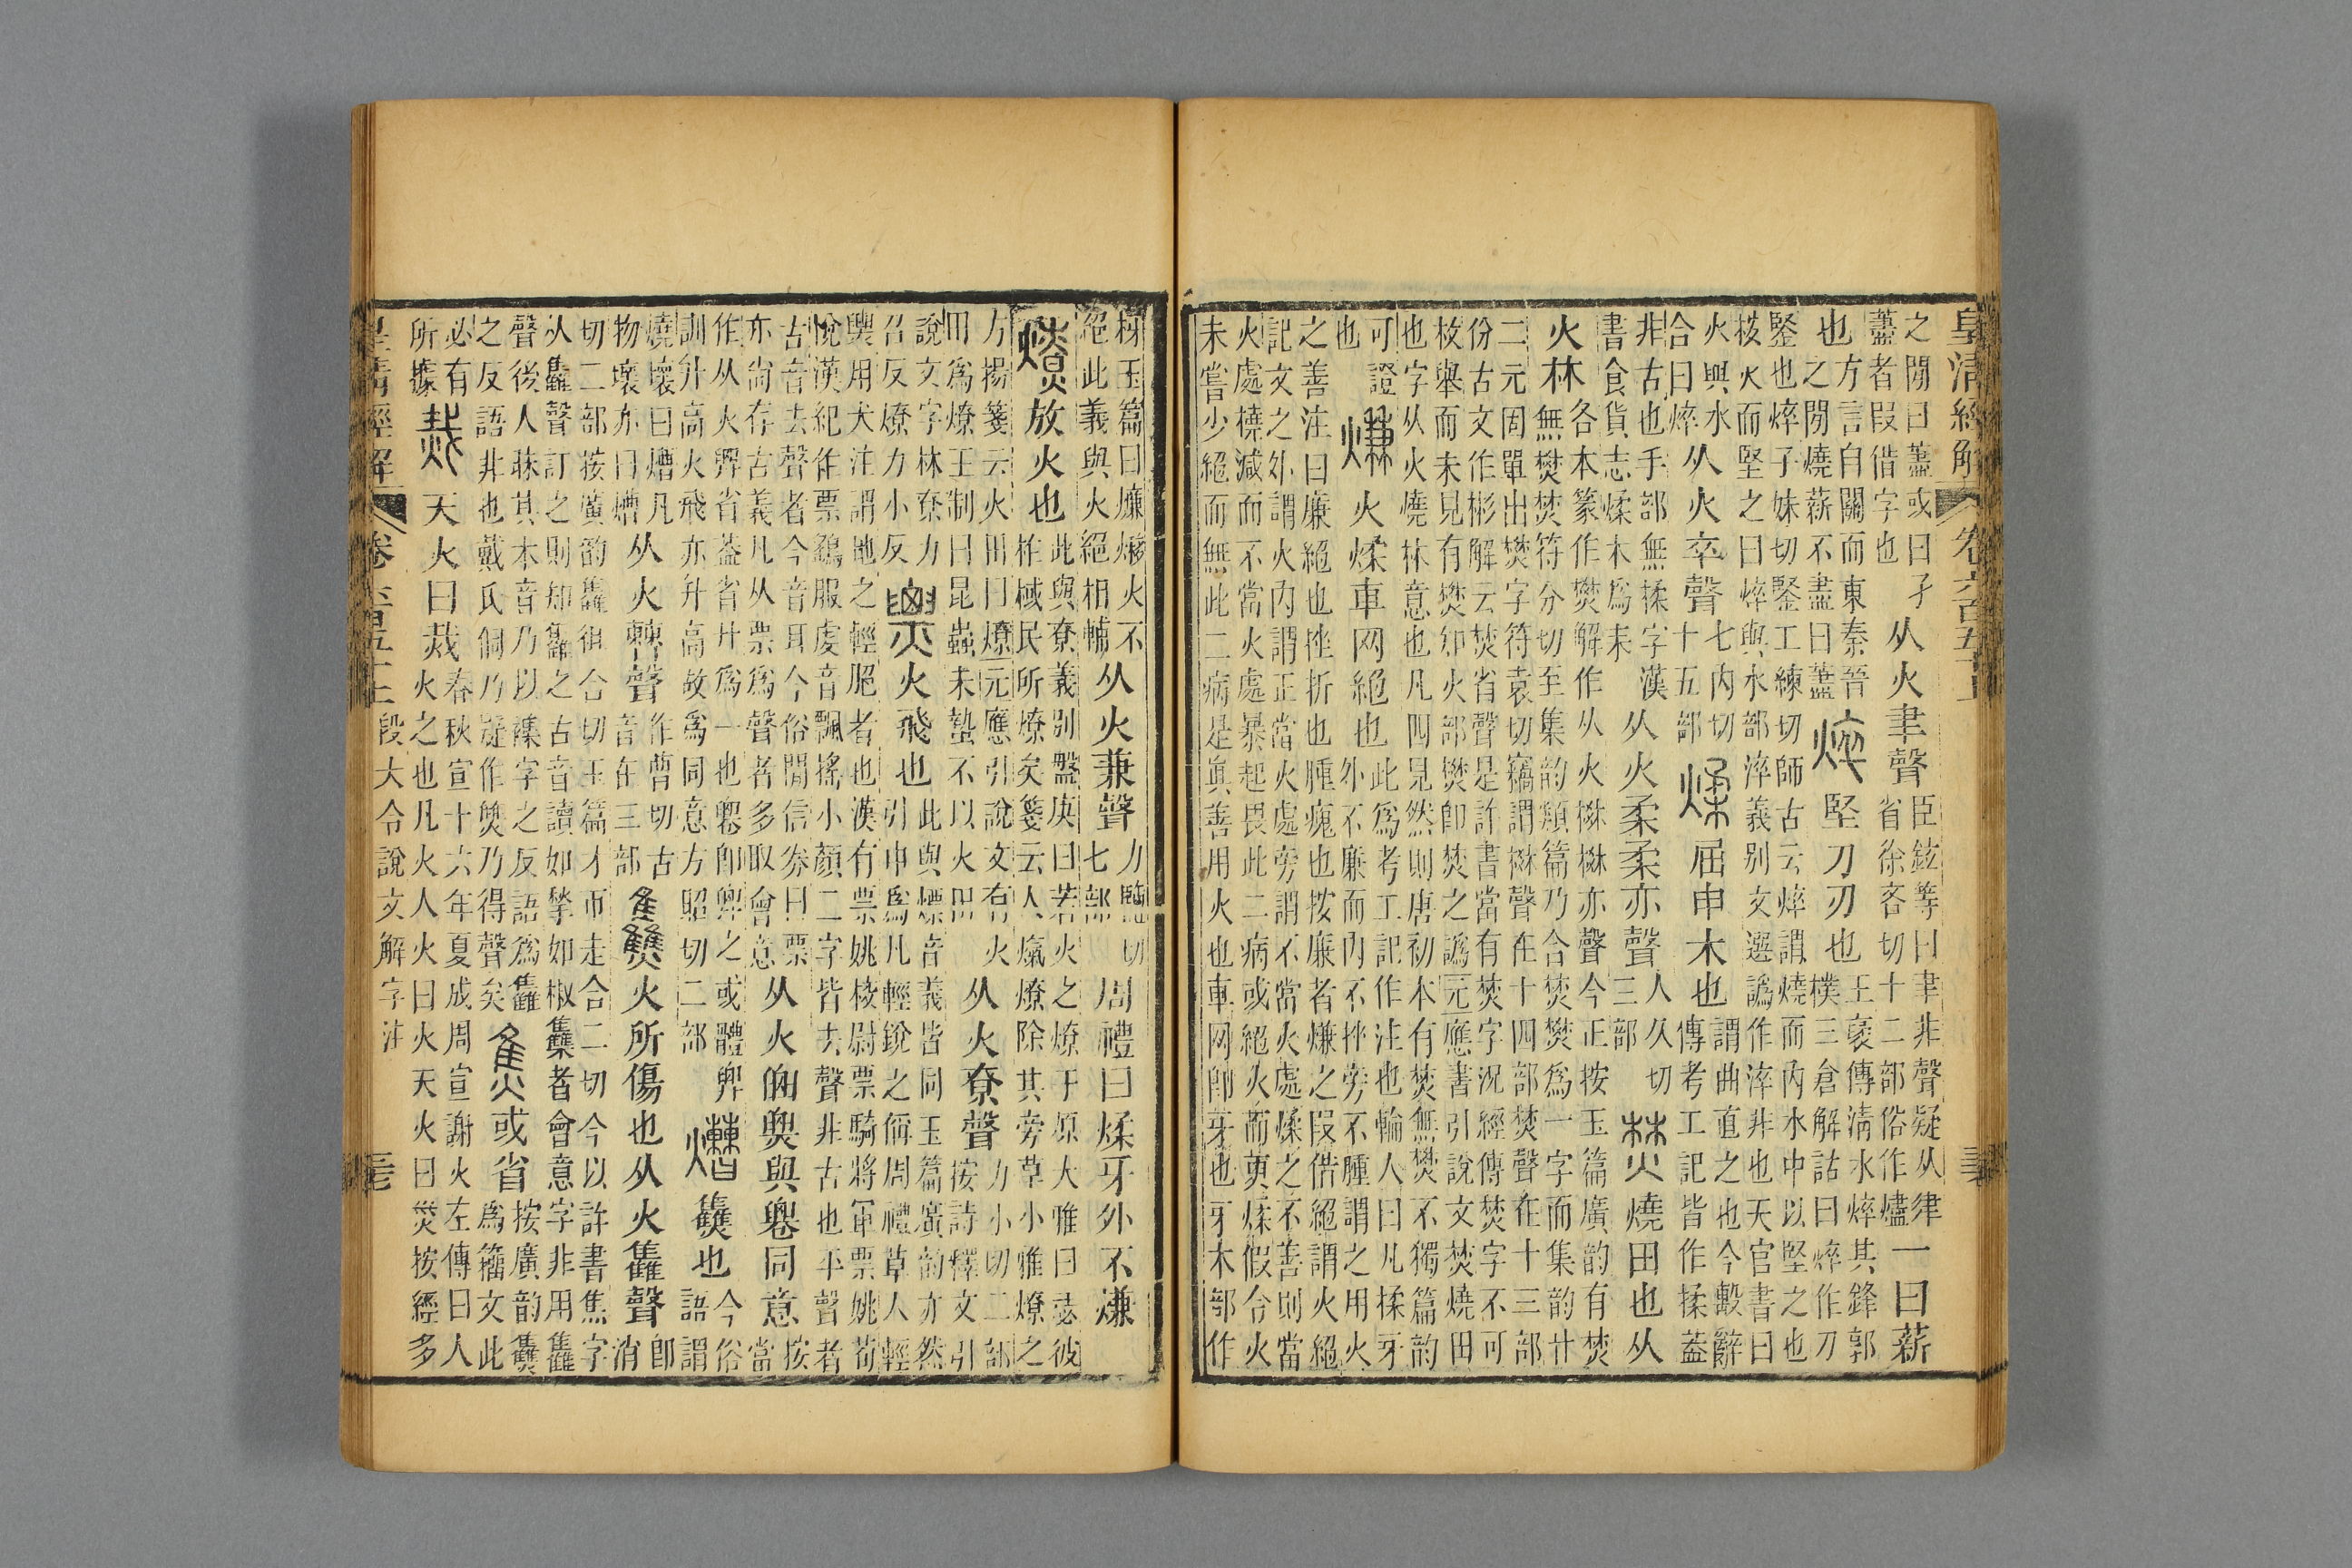 皇清經解 卷六百五十上
之閒曰藎或曰孑
藎者叚借字也
从火聿聲
臣鉉等曰聿非聲疑从律
省徐吝切十二部俗作燼
一曰薪
也
方言自關而東秦晉
之閒燒薪不盡曰藎
焠堅刀刃也
王襃傳清水焠其鋒郭
樸三倉解詁曰焠作刀
鋻也焠子妹切鋻工練切師古云焠謂燒而內水中以堅之也
核火而堅之曰焠與水部淬義别文選譌作淬非也天官書曰
火與水
合曰焠
从火卒聲
七內切
十五部
煣屈申木也
謂曲直之也今繫辭
傳考工記皆作揉蓋
非古也手部無揉字漢
書食貨志煣木爲耒
从火柔柔亦聲
人久切
三部
焚燒田也从
火林
各本篆作樊解作从火棥棥亦聲今正按玉篇廣韵有焚
無樊焚符分切至集韵類篇乃合焚樊爲一字而集韵廿
二元固單出樊字符袁切竊謂棥聲在十四部焚聲在十三部
份古文作彬解云焚省聲是許書當有焚字況經傳焚字不可
枚舉而未見有燓卽火部燓卽焚之譌元應書引說文焚燒田
也字从火燒林意也凡四見然則唐初本有焚無燓不獨篇韵
可證
也
熑火煣車网絕也
此爲考工記作注也輪人曰凡揉牙
外不廉而內不挫旁不腫謂之用火
之善注曰廉絕也挫折也腫瘣也按廉者熑之叚借絕謂火絕
記文之外謂火內謂正當火處旁謂不當火處煣之不善則當
火處橈減而不當火處暴起畏此二病或絕火而更煣假令火
未嘗少絕而無此二病是眞善用火也車网卽牙也牙木部作
枒玉篇曰熑火不
絕此義與火絕相輔
从火兼聲
力鹽切
七部
周禮曰煣牙外不熑
燎放火也
此與尞義别盤庚曰若火之燎于原大雅曰瑟彼
柞棫民所燎矣箋云人熂燎除其旁草小雅燎之
方揚箋云火田曰燎元應引說文有火
田爲燎王制曰昆蟲未蟄不以火田
从火尞聲
力小切二部
按詩釋文引
說文字林尞力
召反燎力小反
票火飛也
此與熛音義皆同玉篇廣韵亦然
引申爲凡輕銳之偁周禮草人輕
㶾用犬注謂地之輕脃者也漢有票姚校尉票騎將軍票姚荀
悅漢紀作票鷂服虔音飄搖小顏二字皆去聲非古也平聲者
古音去聲者今音耳今俗閒信券曰票
亦尙存古義凡从票爲聲者多取會意
从火與同意
按
當
作从火省蓋省廾爲一也卽之或體
訓升高火飛亦升高故爲同意方昭切二部
熷㸈也
今俗
語謂
燒壞曰熷凡
物壞亦曰熷
从火聲
作曹切古
音在三部
㸈火所傷也从火雥聲
卽
消
切二部按廣韵雥徂合切玉篇才帀走合二切今以許書焦字
从雥聲訂之則知雥之古音讀如揫如椒者會意字非用雥
聲後人昧其本音乃以襍字之反語爲雥
之反語非也戴氏侗乃疑作㸈乃得聲矣
焦或省
按廣韵㸈
爲籀文此
必有
所據
烖天火曰烖
春秋宣十六年夏成周宣謝火左傳曰人
火之也凡火人火曰火天火曰災按經多
皇清經解 卷六百五十上 段大令說文解字注